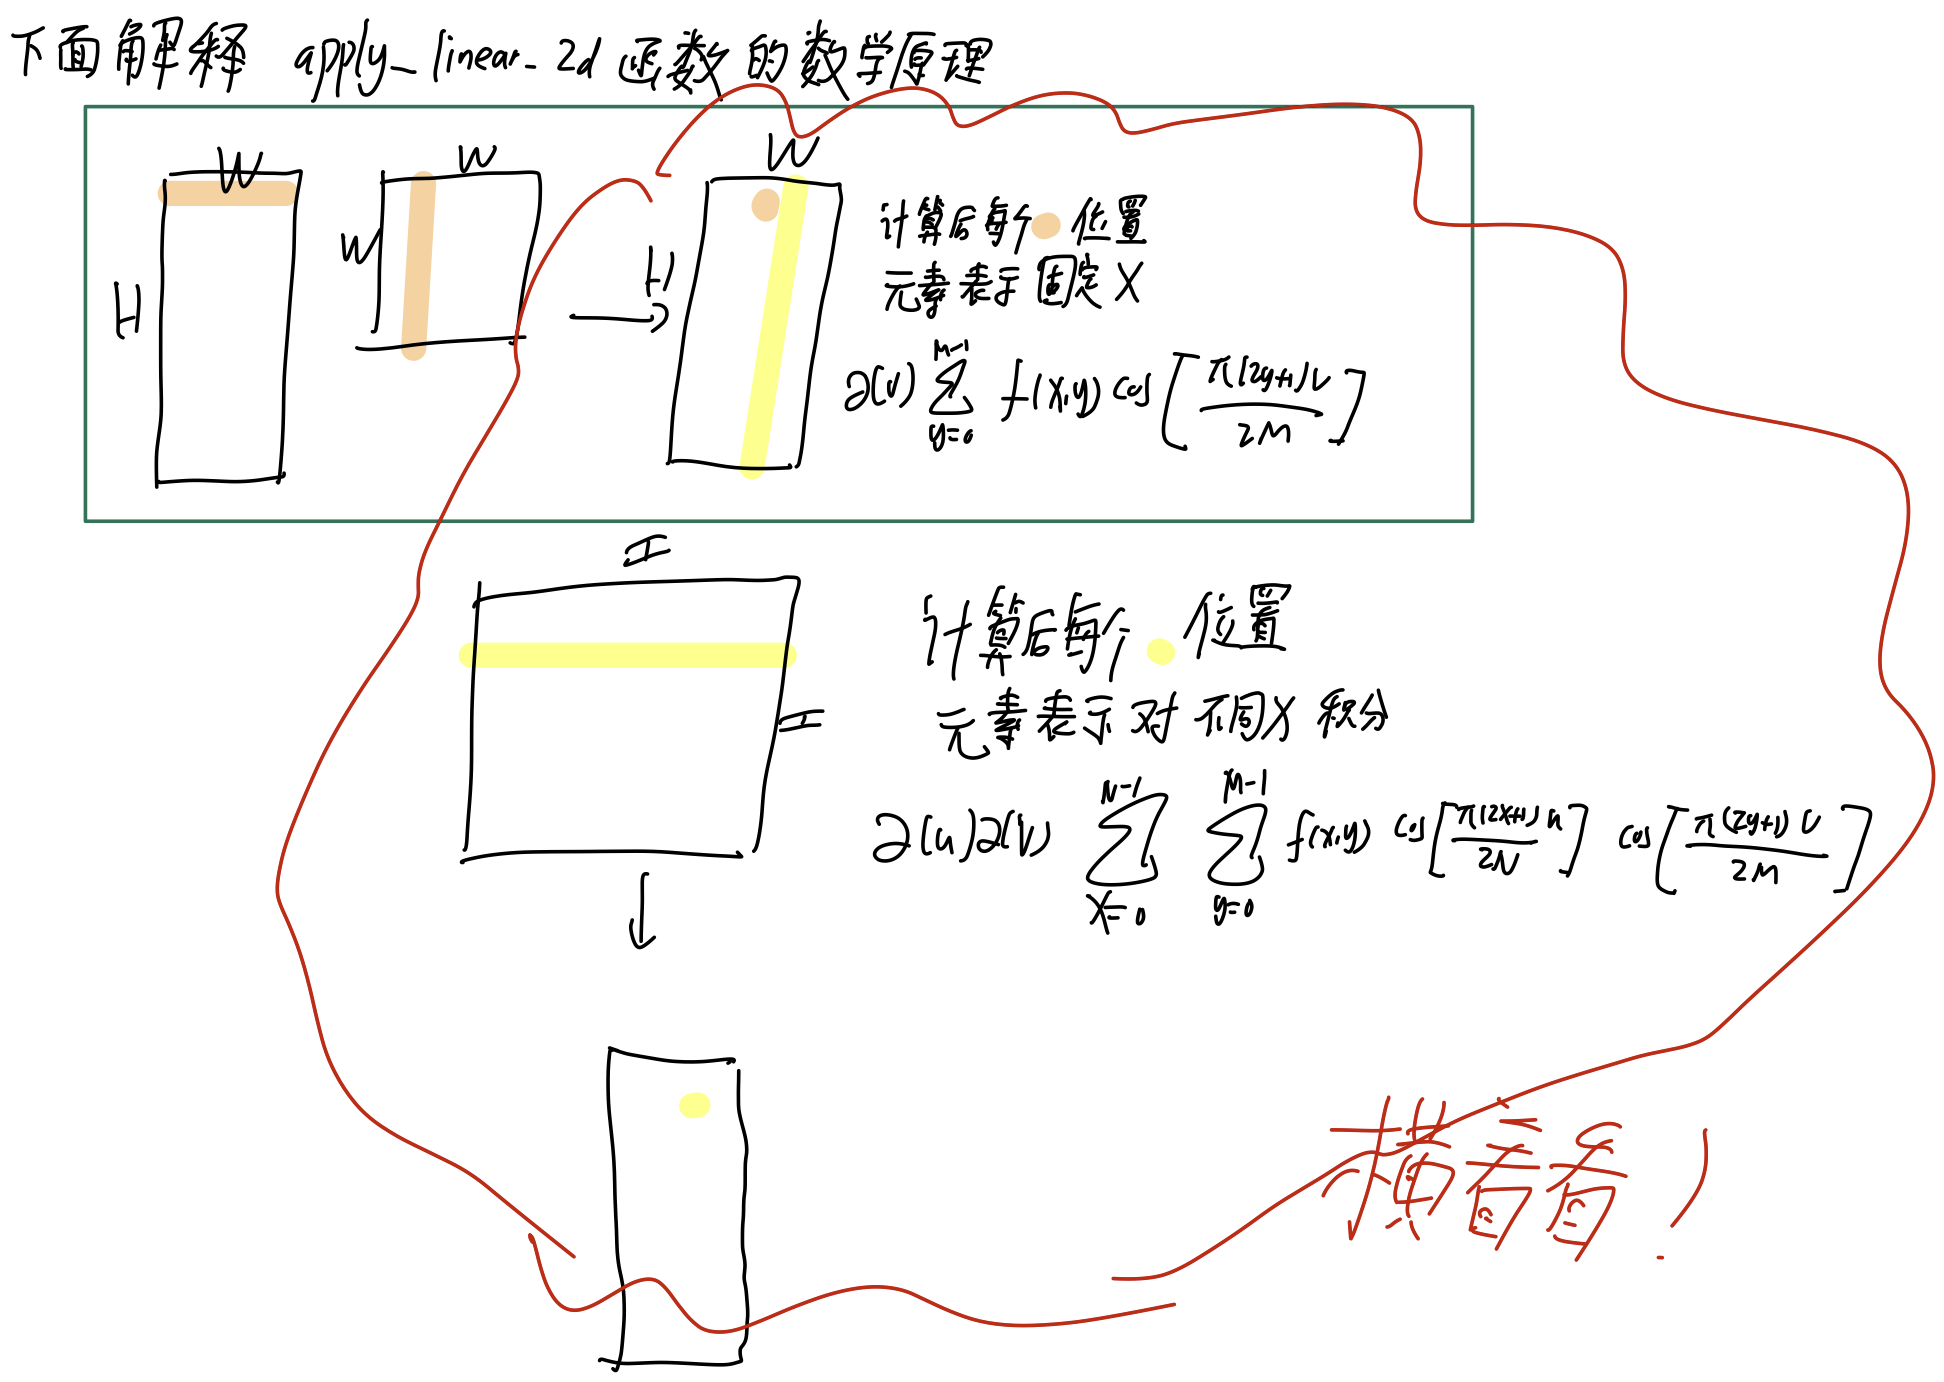 下面解释 apply_linear_2d 函数的数学原理
W
W
W
H
W
H
计算后每个 位置
元素表示固定X
∂(v) ∑_{y=0}^{M-1} f(x,y) cos[π(2y+1)v / 2M]
H
H
计算后每个 位置
元素表示对不同X积分
∂(u)∂(v) ∑_{x=0}^{N-1} ∑_{y=0}^{M-1} f(x,y) cos[π(2x+1)u / 2N] cos[π(2y+1)v / 2M]
横着看!